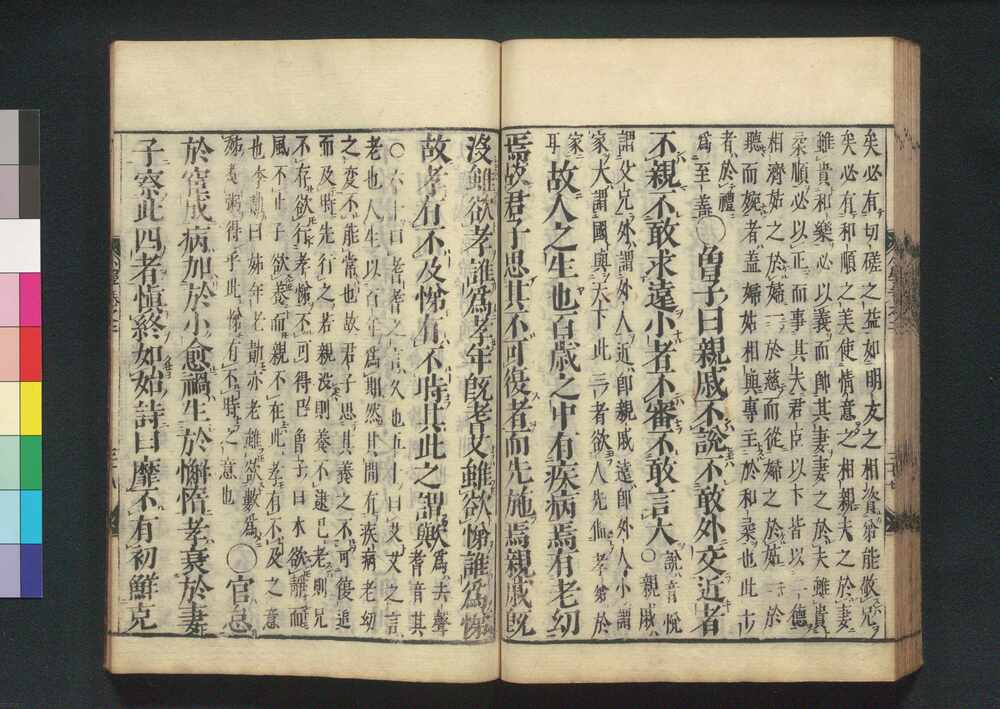 矣必有切磋之益如朋友之相資弟能敬兄
矣必有和順之美使情意之相親夫之於妻
雖貴和樂必以義而帥其妻妻之於夫雖貴
柔順必以正而事其夫君臣以下皆以二德
相濟姑之於婦一於慈而從婦之於姑一於
聽而婉者蓋婦姑相與專主於和柔也此六
者於禮
爲至善〇曾子曰親戚不說不敢外交近者
不親不敢求遠小者不審不敢言大〇說音悅親戚
謂父兄外謂外人近卽親戚遠卽外人小謂
家大謂國與天下此三者欲人先
家
耳故人之生也百歲之中有疾病焉有老幼
焉故君子思其不可復者而先施焉親戚旣
沒雖欲孝誰爲孝年旣老艾雖欲悌誰爲悌
故孝有不及悌有不時其此之謂歟爲去聲耆音其
〇六十曰耆耆之言久也五十曰艾艾之言
老也人生以百年爲期然其間有疾病老幼
之變不能常也故君子思其養之不可復追
而及時先行之若親沒則養不逮已老則兄
不存欲行孝悌不可得已曾子曰木欲靜而
風不止子欲養而親不在此孝有不及之意
也李勣曰姊年老勣亦老雖欲數爲
姊煮粥得乎此悌有不時之意也〇官怠
於宦成病加於小愈禍生於懈惰孝衰於妻
子察此四者愼終如始詩曰靡不有初鮮克